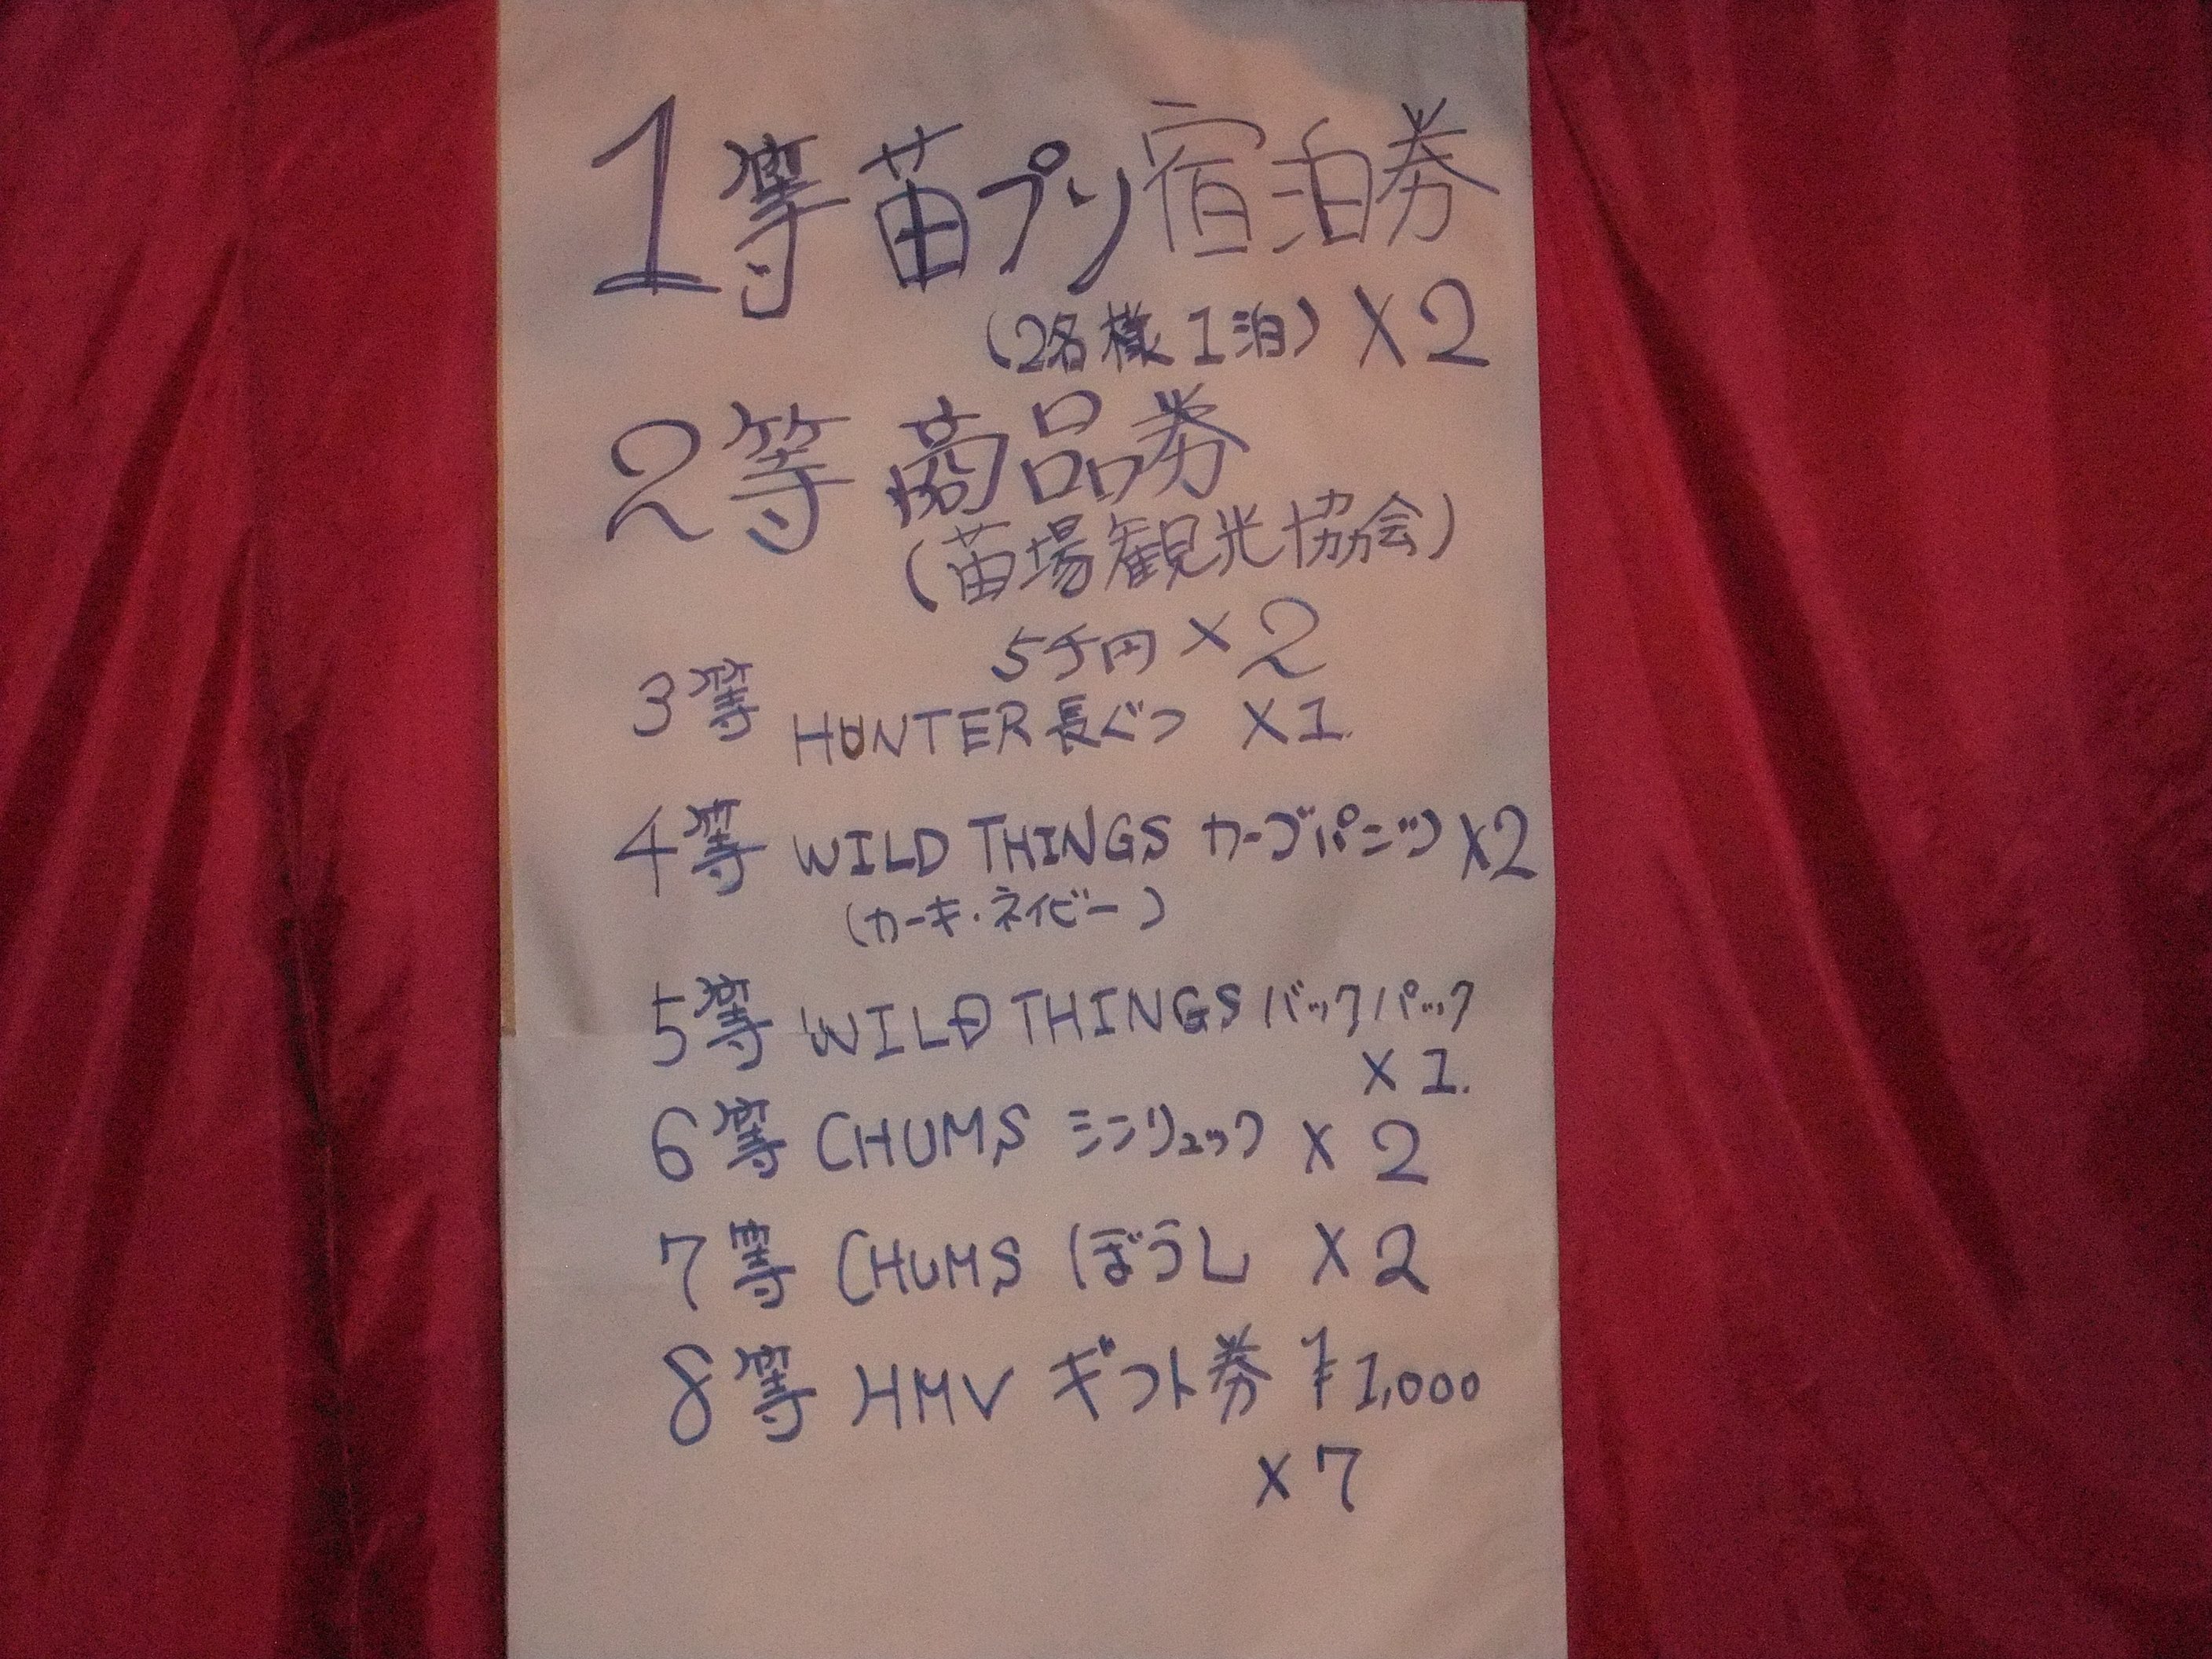 1等 苗プリ宿泊券
(2名様1泊) ×2
2等 商品券
(苗場観光協会)
5千円 ×2
3等 HUNTER 長ぐつ ×1.
4等 WILD THINGS カーゴパンツ ×2
(カーキ・ネイビー)
5等 WILD THINGS バックパック
×1.
6等 CHUMS ミンリュック ×2
7等 CHUMS ぼうし ×2
8等 HMV ギフト券 ¥1,000
×7